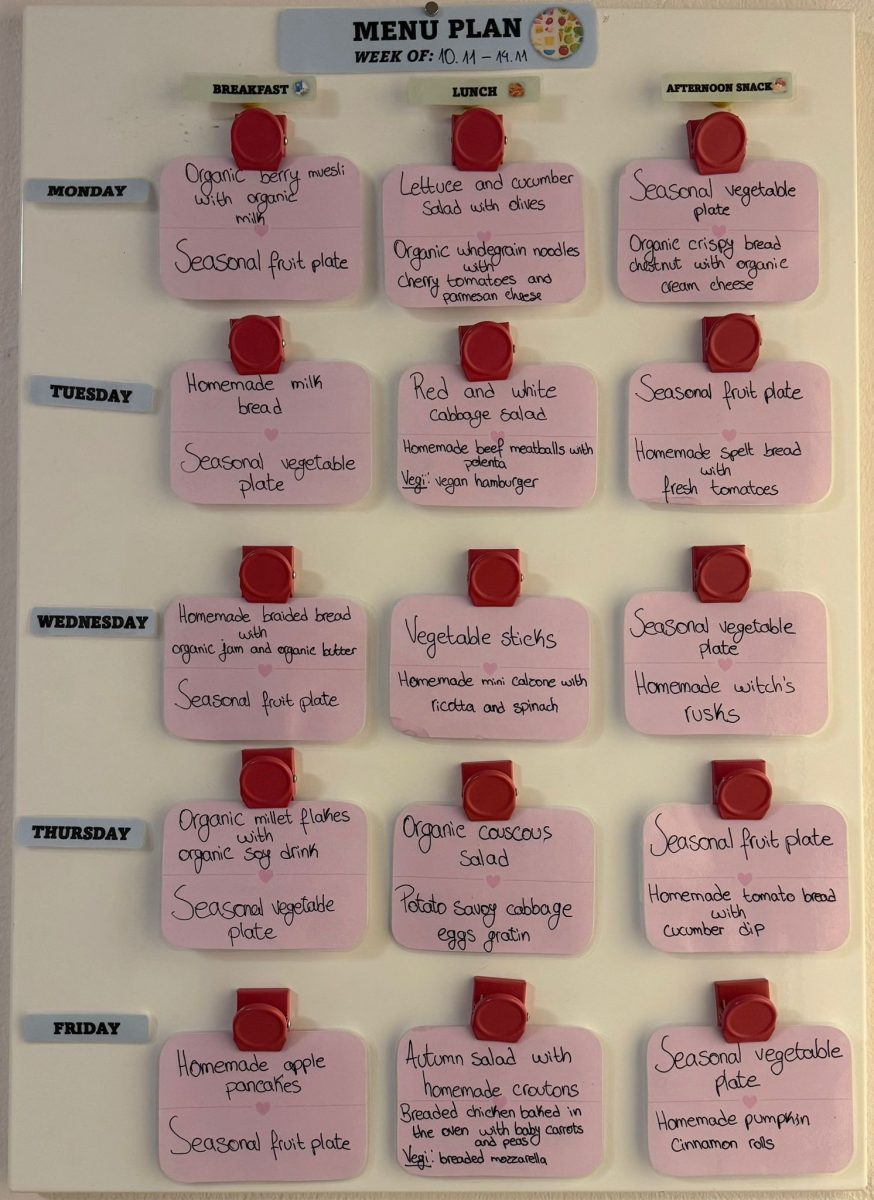 MENU PLAN
WEEK OF: 10.11 – 14.11
BREAKFAST
LUNCH
AFTERNOON SNACK
MONDAY
Organic berry muesli
with organic
milk
Seasonal fruit plate
Lettuce and cucumber
Salad with olives
Organic wholegrain noodles
with
cherry tomatoes and
parmesan cheese
Seasonal vegetable
plate
Organic crispy bread
chestnut with organic
cream cheese
TUESDAY
Homemade milk
bread
Seasonal vegetable
plate
Red and white
cabbage salad
Homemade beef meatballs with
polenta
Vegi: vegan hamburger
Seasonal fruit plate
Homemade spelt bread
with
fresh tomatoes
WEDNESDAY
Homemade braided bread
with
organic jam and organic butter
Seasonal fruit plate
Vegetable sticks
Homemade mini calzone with
ricotta and spinach
Seasonal vegetable
plate
Homemade witch's
rusks
THURSDAY
Organic millet flakes
with
organic soy drink
Seasonal vegetable
plate
Organic couscous
Salad
Potato savoy cabbage
eggs gratin
Seasonal fruit plate
Homemade tomato bread
with
cucumber dip
FRIDAY
Homemade apple
pancakes
Seasonal fruit plate
Autumn salad with
homemade croutons
Breaded chicken baked in
the oven with baby carrots
and peas
Vegi: breaded mozzarella
Seasonal vegetable
plate
Homemade pumpkin
Cinnamon rolls